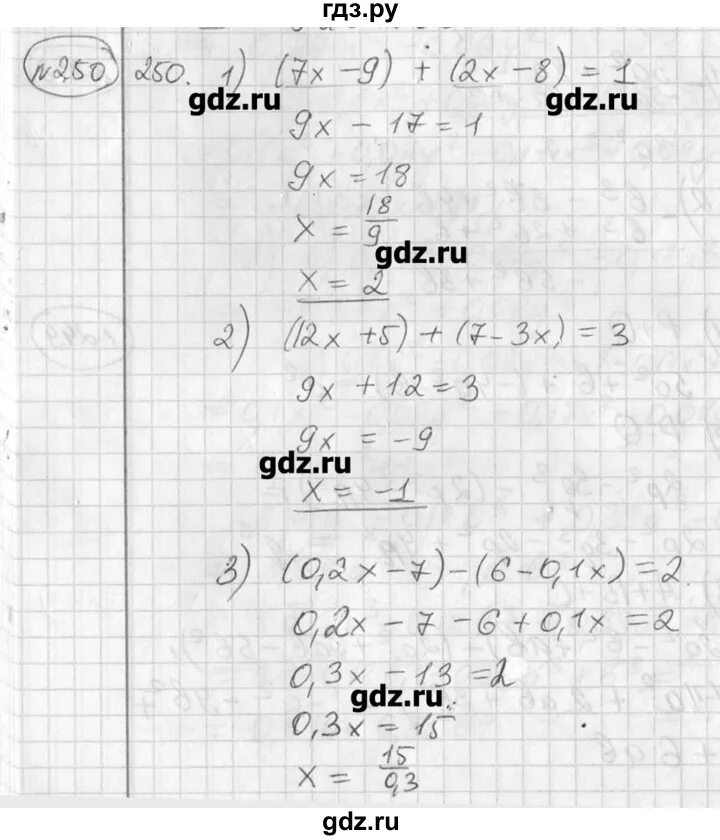 гдз.ру
№250 250. 1) (7x - 9) + (2x - 8) = 1
gdz.ru gdz.ru
9x - 17 = 1
9x = 18
x = 18/9
gdz.ru
x = 2
2) (12x + 5) + (7 - 3x) = 3
9x + 12 = 3
9x = -9
gdz.ru
x = -1
3) (0,2x - 7) - (6 - 0,1x) = 2
0,2x - 7 - 6 + 0,1x = 2
0,3x - 13 = 2
gdz.ru
0,3x = 15
x = 15/0,3
gdz.ru